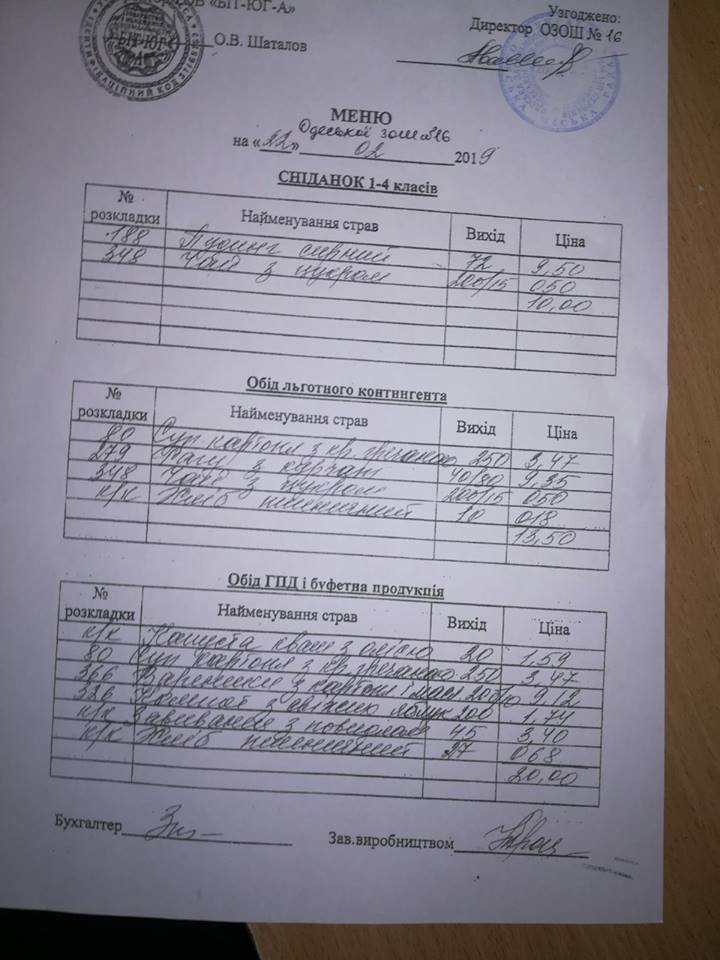 «БІТ-ЮГ-А»
О.В. Шаталов
Узгоджено:
Директор ОЗОШ № 16
МЕНЮ
Одеської зош №16
на «22» 02 2019
СНІДАНОК 1-4 класів
№ розкладки Найменування страв Вихід Ціна
188 Пудинг сирний 72 9,50
348 Чай з цукром 200/15 050
10,00
Обід льготного контингента
№ розкладки Найменування страв Вихід Ціна
80 Суп картопл з кр. гречаною 250 3,47
279 Рагу з курчат 40/80 9,35
348 Чай з цукром 200/15 050
к/к Хліб пшеничний 10 018
13,50
Обід ГПД і буфетна продукція
№ розкладки Найменування страв Вихід Ціна
к/к Капуста кваш з олією 20 1,59
80 Суп картопл з кр. гречаною 250 3,47
366 Вареники з картопл і масл 200/10 9,12
336 Компот з свіжих яблук 200 1,74
к/к Завиванець з повидлом 45 3,40
к/к Хліб пшеничний 27 068
20,00
Бухгалтер
Зав.виробництвом